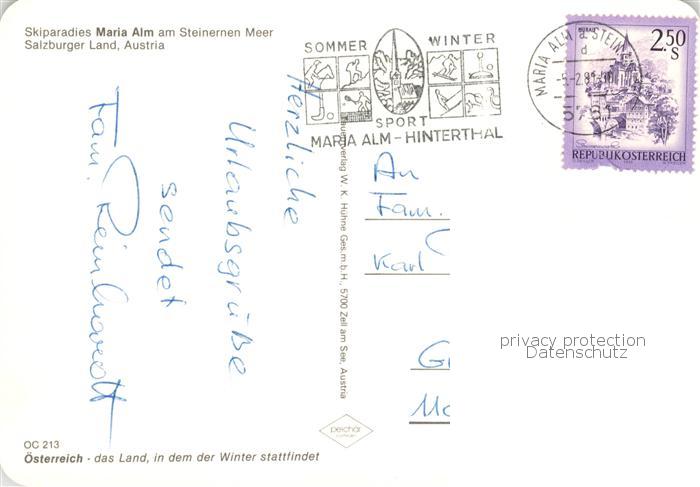 Skiparadies Maria Alm am Steinernen Meer
Salzburger Land, Austria
SOMMER WINTER
SPORT
MARIA ALM - HINTERTHAL
MARIA ALM a. STEIN
d
5.2.8
MURAU
2.50
S
REPUBLIK ÖSTERREICH
Herzliche
Urlaubsgrüße
sendet
Fam. Reinhardt
verlag W. K. Hühne Ges.m.b.H., 5700 Zell am See, Austria
An
Fam.
Karl
privacy protection
Datenschutz
peichär
OC 213
Österreich - das Land, in dem der Winter stattfindet